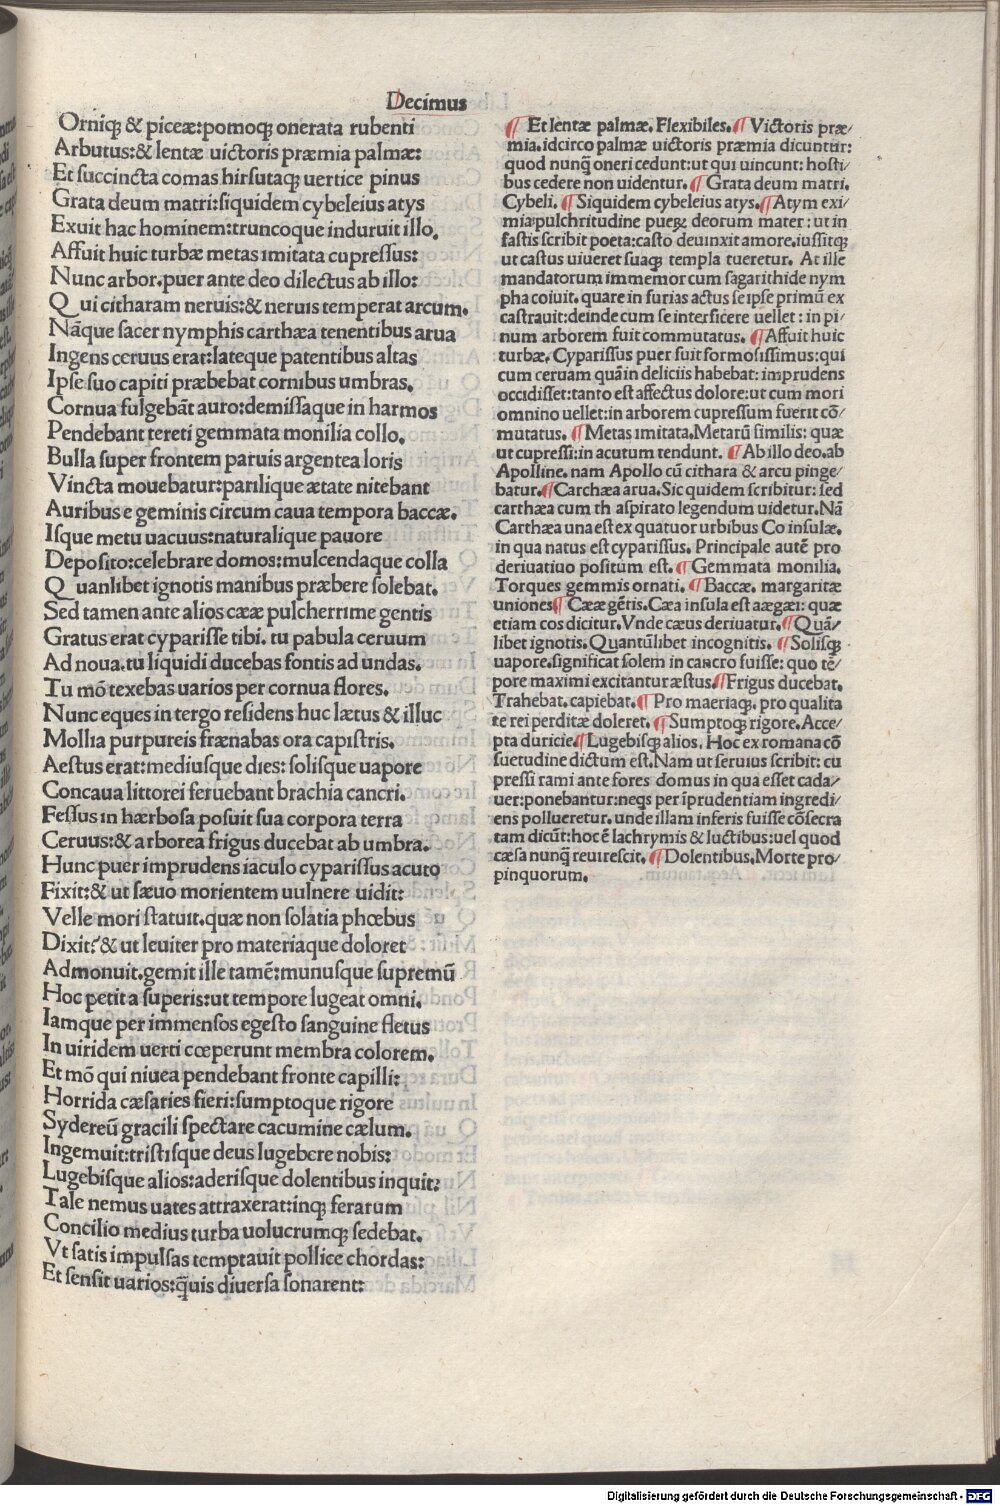 Decimus
Orniqꝫ & piceæ:pomoqꝫ onerata rubenti
Arbutus:& lentæ uictoris præmia palmæ:
Et succincta comas hirsutaqꝫ uertice pinus
Grata deum matri:siquidem cybeleius atys
Exuit hac hominem:truncoque induruit illo.
Affuit huic turbæ metas imitata cupressus:
Nunc arbor.puer ante deo dilectus ab illo:
Q ui citharam neruis:& neruis temperat arcum.
Nãque sacer nymphis carthæa tenentibus arua
Ingens ceruus erat:lateque patentibus altas
Ipse suo capiti præbebat cornibus umbras.
Cornua fulgebãt auro:demissaque in harmos
Pendebant tereti gemmata monilia collo.
Bulla super frontem paruis argentea loris
Vincta mouebatur:parilique ætate nitebant
Auribus e geminis circum caua tempora baccæ.
Isque metu uacuus:naturalique pauore
Deposito:celebrare domos:mulcendaque colla
Q uanlibet ignotis manibus præbere solebat.
Sed tamen ante alios cææ pulcherrime gentis
Gratus erat cyparisse tibi. tu pabula ceruum
Ad noua.tu liquidi ducebas fontis ad undas.
Tu mõ texebas uarios per cornua flores.
Nunc eques in tergo residens huc lætus & illuc
Mollia purpureis frænabas ora capistris.
Aestus erat:mediusque dies: solisque uapore
Concaua littorei feruebant brachia cancri.
Fessus in hærbosa posuit sua corpora terra
Ceruus:& arborea frigus ducebat ab umbra.
Hunc puer imprudens iaculo cyparissus acuto
Fixit:& ut sæuo morientem uulnere uidit:
Velle mori statuit.quæ non solatia phœbus
Dixit?& ut leuiter pro materiaque doloret
Admonuit.gemit ille tamẽ:munusque supremũ
Hoc petit a superis:ut tempore lugeat omni.
Iamque per immensos egesto sanguine fletus
In uiridem uerti cœperunt membra colorem.
Et mõ qui niuea pendebant fronte capilli:
Horrida cæsaries fieri:sumptoque rigore
Sydereũ gracili spectare cacumine cælum.
Ingemuit:tristisque deus lugebere nobis:
Lugebisque alios:aderisque dolentibus inquit:
Tale nemus uates attraxerat:inqꝫ ferarum
Concilio medius turba uolucrumqꝫ sedebat.
Vt satis impulsas temptauit pollice chordas:
Et sensit uarios:q̃uis diuersa sonarent:
¶ Et lentæ palmæ. Flexibiles. ¶ Victoris præ/
mia.idcirco palmæ uictoris præmia dicuntur:
quod nunq̃ oneri cedunt:ut qui uincunt: hosti/
bus cedere non uidentur. ¶ Grata deum matri.
Cybeli. ¶ Siquidem cybeleius atys. ¶ Atym exi/
mia pulchritudine pueꝝ deorum mater: ut in
fastis scribit poeta:casto deuinxit amore.iussitqꝫ
ut castus uiueret suaqꝫ templa tueretur. At ille
mandatorum immemor cum sagarithide nym
pha coiuit. quare in furias actus se ipse primũ ex
castrauit:deinde cum se interficere uellet: in pi/
num arborem fuit commutatus. ¶ Affuit huic
turbæ. Cyparissus puer fuit formosissimus:qui
cum ceruam quã in deliciis habebat: imprudens
occidisset:tanto est affectus dolore:ut cum mori
omnino uellet:in arborem cupressum fuerit cõ/
mutatus. ¶ Metas imitata.Metarũ similis: quæ
ut cupressi:in acutum tendunt. ¶ Ab illo deo.ab
Apolline. nam Apollo cũ cithara & arcu pinge/
batur. ¶ Carchæa arua. Sic quidem scribitur: sed
carthæa cum th aspirato legendum uidetur. Nã
Carthæa una est ex quatuor urbibus Co insulæ.
in qua natus est cyparissus. Principale autẽ pro
deriuatiuo positum est. ¶ Gemmata monilia.
Torques gemmis ornati. ¶ Baccæ. margaritæ
uniones ¶ Cææ gẽtis. Cæa insula est aægæi: quæ
etiam cos dicitur. Vnde cæus deriuatur. ¶ Quã/
libet ignotis. Quantũlibet incognitis. ¶ Solisqꝫ
uapore.significat solem in cancro fuisse: quo tẽ/
pore maximi excitantur æstus. ¶ Frigus ducebat.
Trahebat. capiebat. ¶ Pro maeriaqꝫ. pro qualita
te rei perditæ doleret. ¶ Sumptoqꝫ rigore. Acce/
pta duricie. ¶ Lugebisqꝫ alios. Hoc ex romana cõ
suetudine dictum est. Nam ut seruius scribit: cu
pressi rami ante fores domus in qua esset cada/
uer:ponebantur:neqs per ĩprudentiam ingredi/
ens pollueretur. unde illam inferis fuisse cõsecra
tam dicũt:hoc ẽ lachrymis & luctibus:uel quod
cæsa nunq̃ reuirescit. ¶ Dolentibus. Morte pro/
pinquorum.
Digitalisierung gefördert durch die Deutsche Forschungsgemeinschaft - DFG